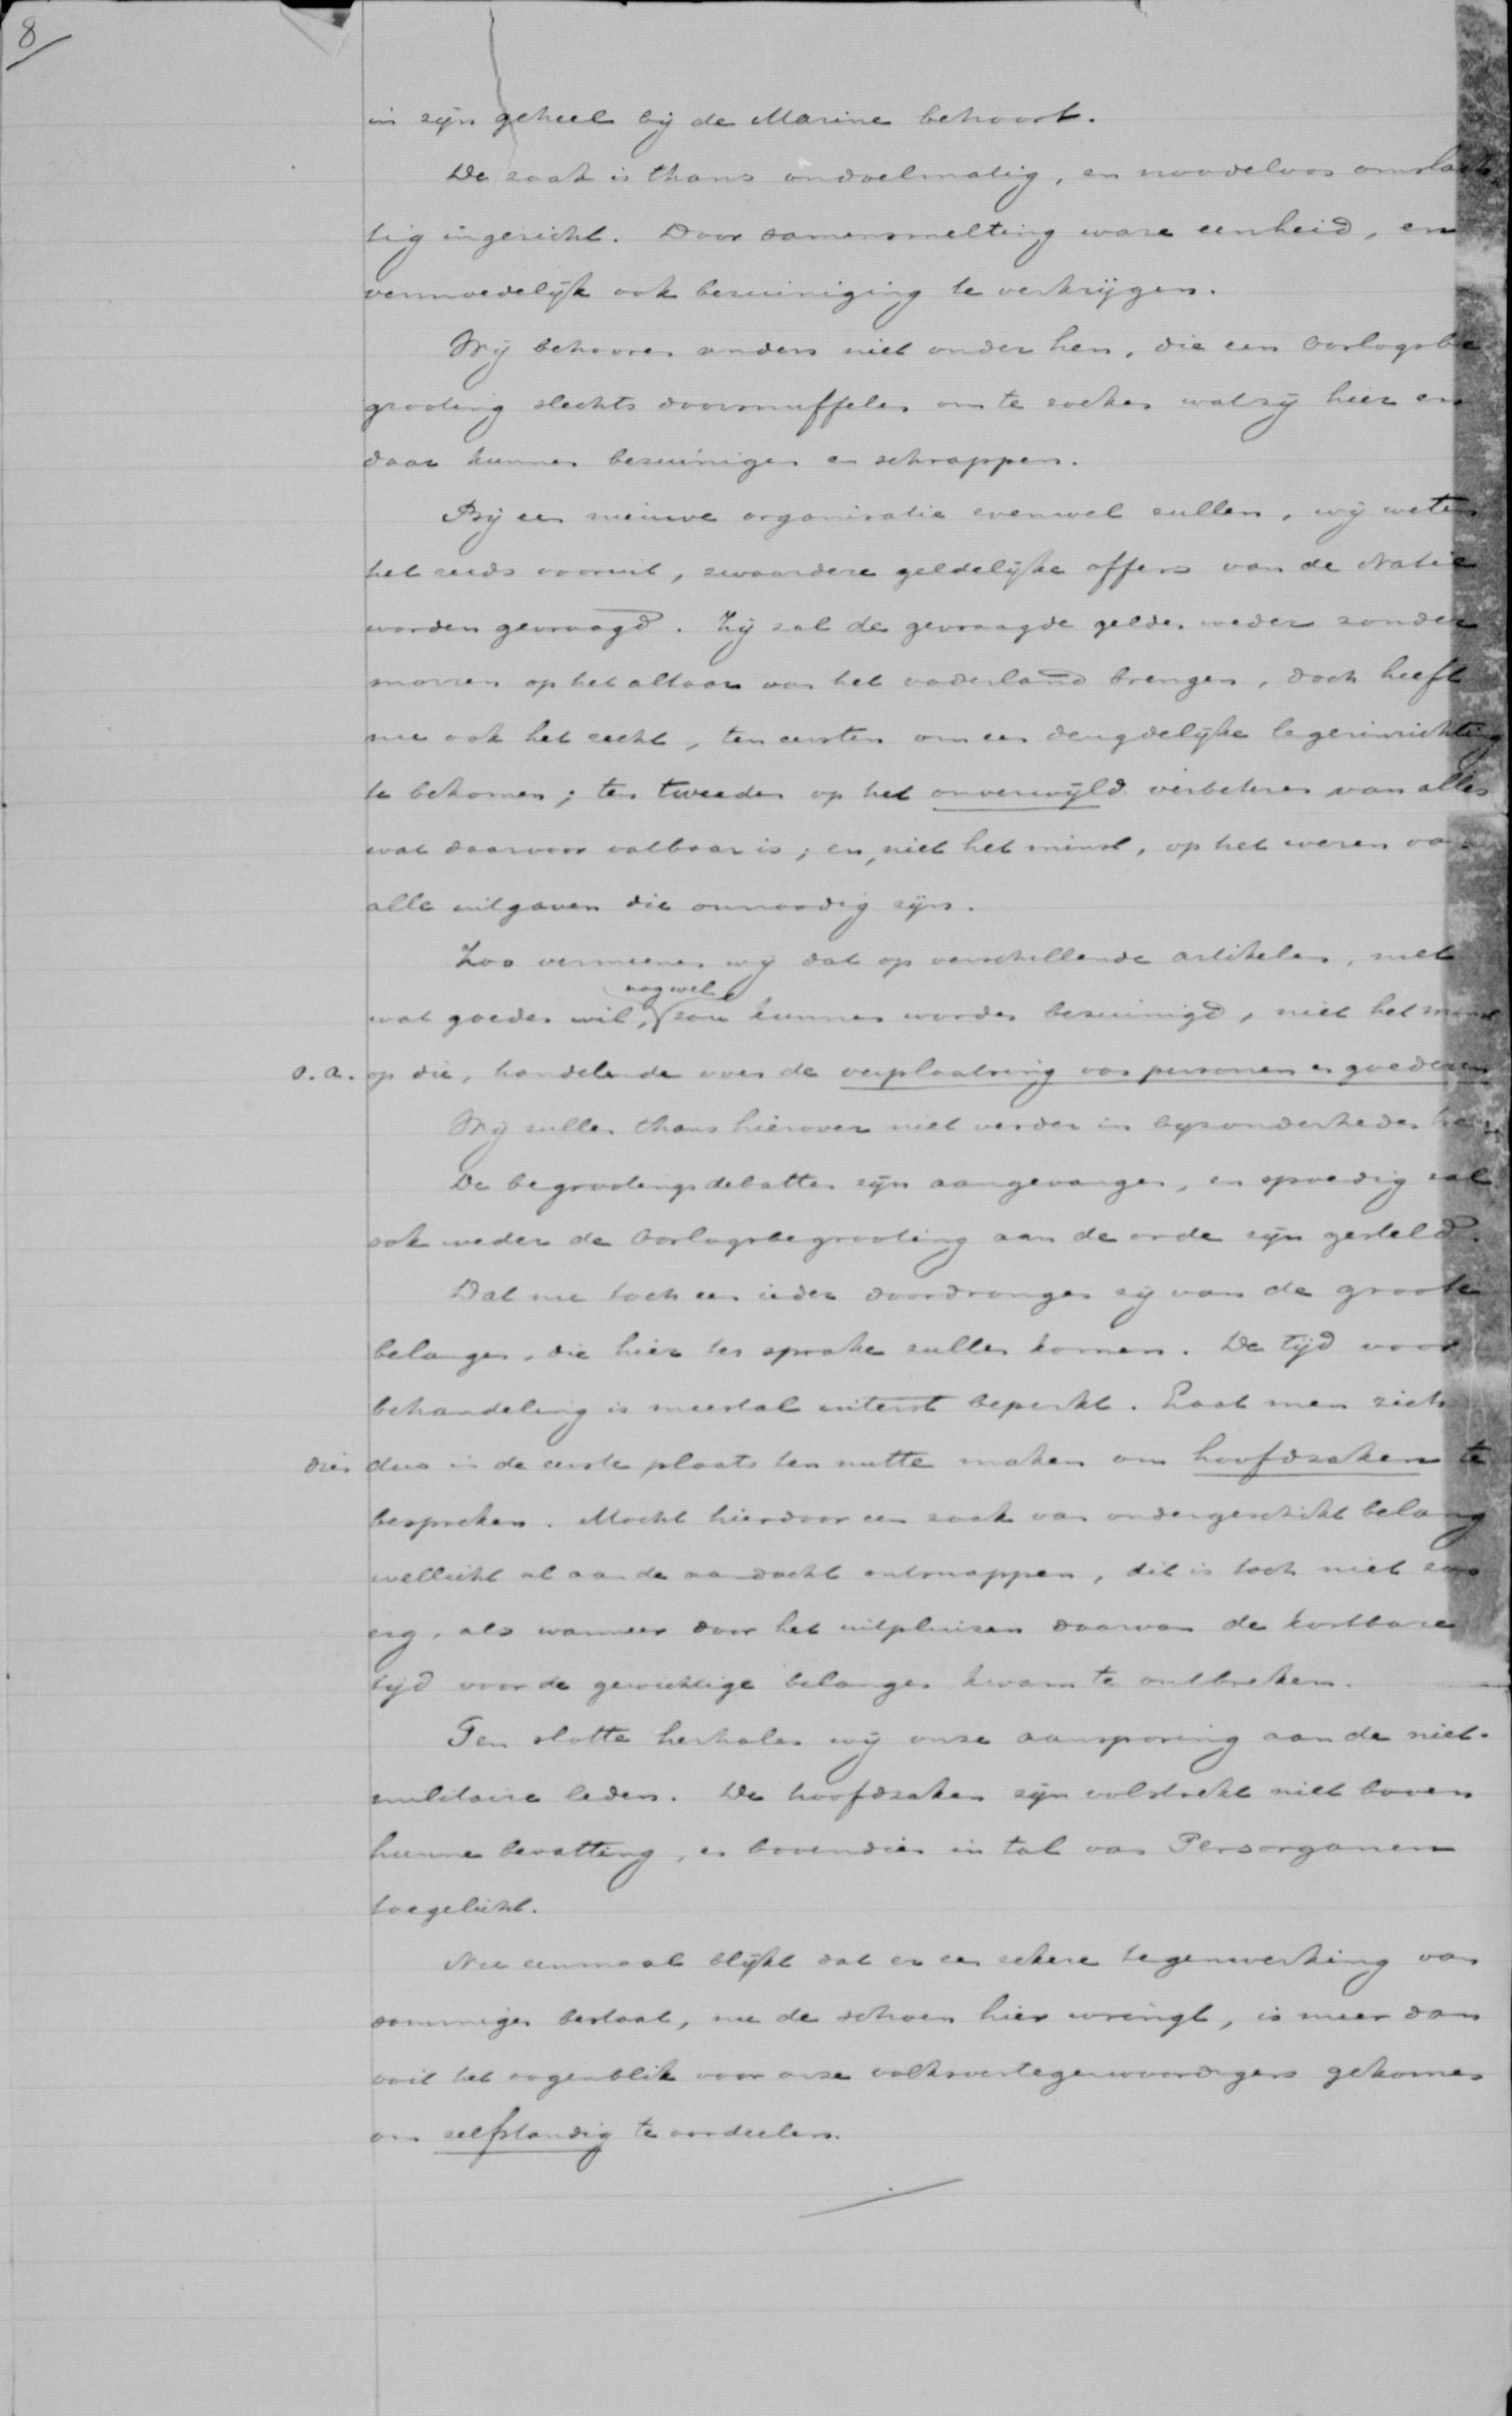 8
in zijn geheel bij de Marine behoort.
De zaak is thans ondoelmatig, en noodeloos omslach
tig ingericht. Door samensmelting ware eenheid, en
vermoedelijk ook bezuiniging te verkrijgen.
Wij behooren anders niet onder hen, die een Oorlogsbe
grooting slechts doorsnuffelen om te zoeken wat zij hier en
daar kunnen bezuinigen en schrappen.
Bij een nieuwe organisatie evenwel zullen, wij weten
het reeds vooruit, zwaardere geldelijke offers van de Natie
worden gevraagd. Zij zal de gevraagde gelden weder zonder
morren op het altaar van het vaderland brengen, doch heeft
nu ook het recht, ten eersten om een deugdelijke legerinrichting
te bekomen; ten tweeden op het onverwijld verbeteren van alles
wat daarvoor vatbaar is; en, niet het minst, op het weren van
alle uitgaven die onnoodig zijn.
Zoo vermeenen wij dat op verschillende artikelen, met
nog wel
wat goeden wil, zou kunnen worden bezuinigd, niet het minst
o.a. op die, handelende over de verplaatsing van personen en goederen
Wij zullen thans hierover niet verder in bijzonderheden
De begrootingsdebatten zijn aangevangen, en spoedig zal
ook weder de Oorlogsbegrooting aan de orde zijn gesteld.
Dat nu toch een ieder doordrongen zij van de groote
belangen, die hier ter sprake zullen komen. De tijd voor
behandeling is meestal uiterst beperkt. Laat men zich
dien dus in de eerste plaats ten nutte maken om hoofdzaken te
bespreken. Mocht hierdoor een zaak van ondergeschikt belang
wellicht al aan de aandacht ontsnappen, dit is toch niet zoo
erg, als wanneer door het uitpluizen daarvan de kostbare
tijd voor de gewichtige belangen kwam te ontbreken.
Ten slotte herhalen wij onze aansporing aan de niet-
militaire leden. De hoofdzaken zijn volstrekt niet boven
hunne bevatting, en bovendien in tal van Persorganen
toegelicht.
Nu eenmaal blijkt dat er een zekere tegenwerking van
sommigen bestaat, nu de schoen hier wringt, is meer dan
ooit het oogenblik voor onze volksvertegenwoordigers gekomen
om zelfstandig te oordeelen.